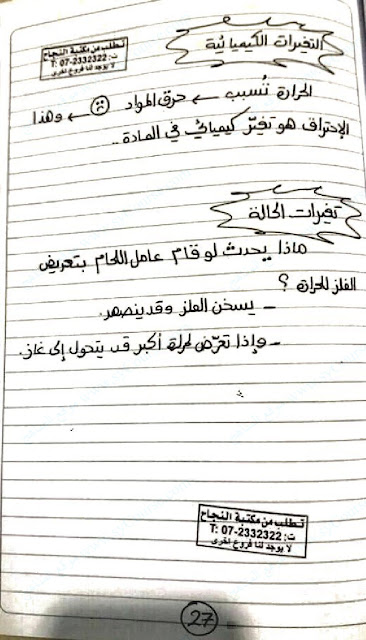 التغيرات الكيميائية
تطلب من مكتبة النجاح
ت: 07-2332322 :T
لا يوجد لنا فروع اخرى
الحرارة تُسبب ← حرق المواد ☹ ← وهذا
الإحتراق هو تغيّر كيميائي في المادة ..
تغيرات الحالة
ماذا يحدث لو قام عامل اللحام بتعريض
الفلز للحرارة ؟
- يسخن الفلز وقد ينصهر.
- وإذا تعرّض لحرارة أكبر قد يتحول إلى غاز.
تطلب من مكتبة النجاح
ت: 07-2332322 :T
لا يوجد لنا فروع اخرى
27